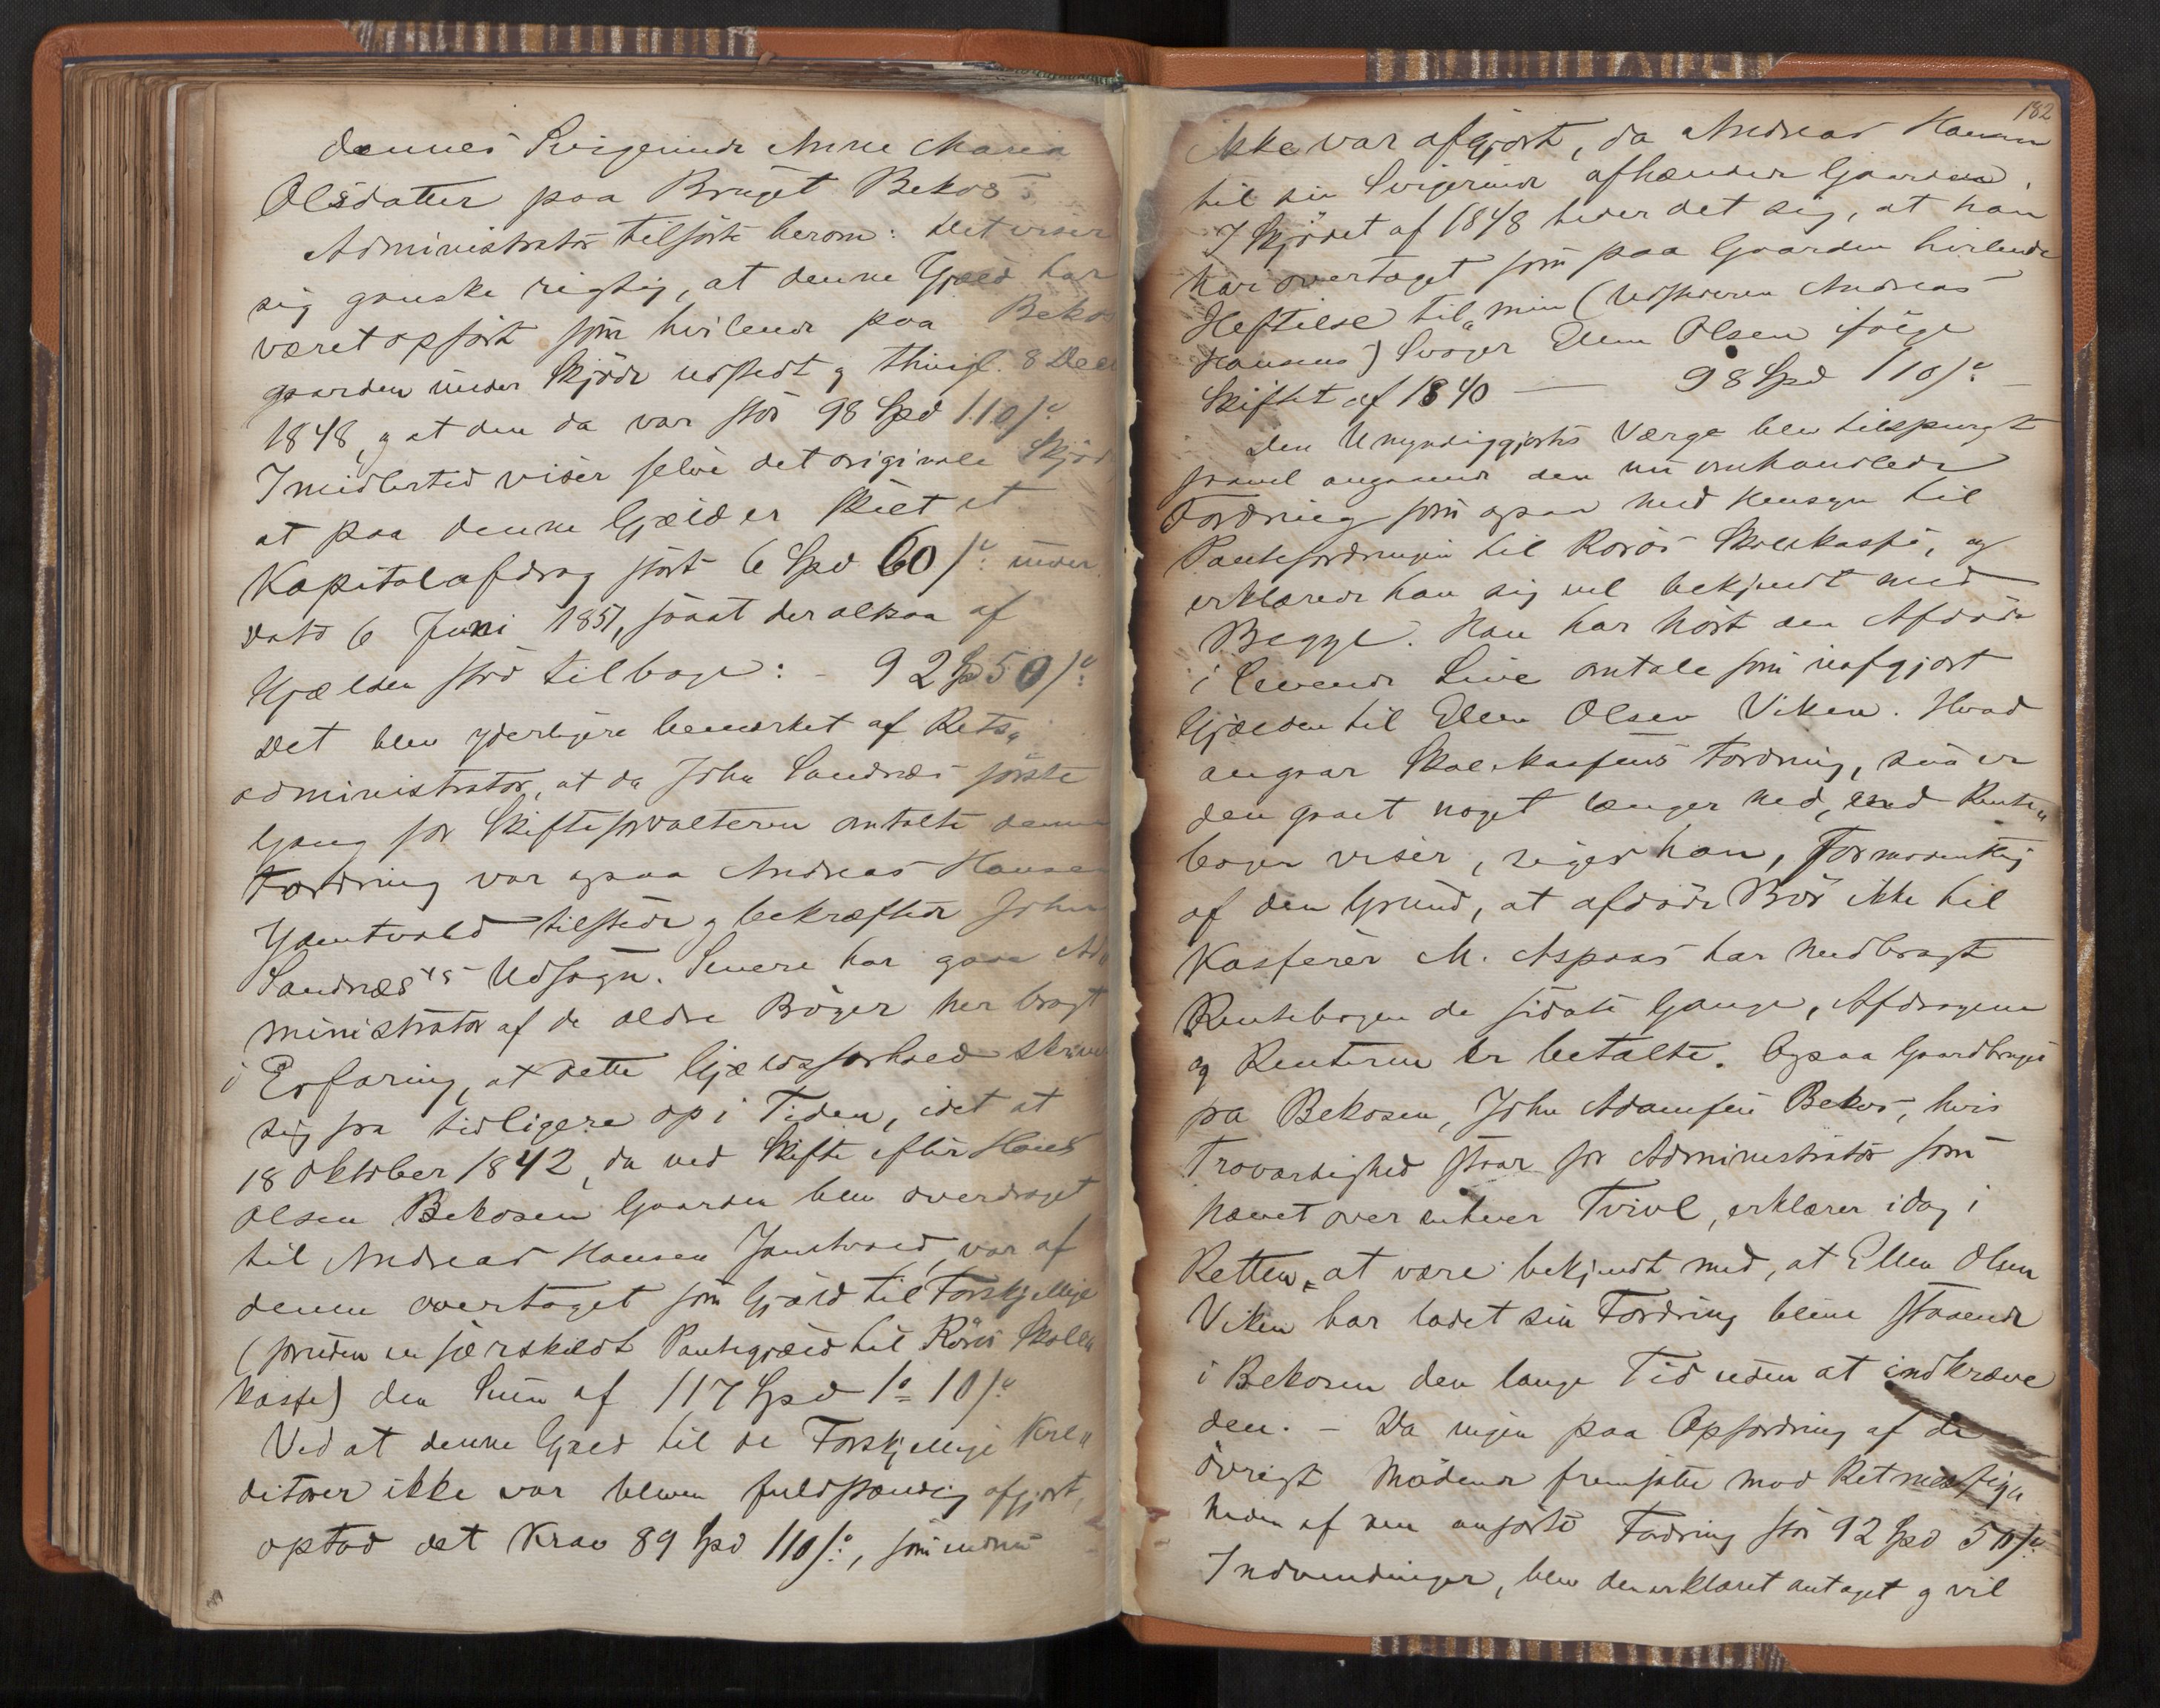 dennes Svigerinde Anne Maria
Olsdatter paa Bruget Bekos
Administrator tilførte herom: Det viser
sig ganske rigtig, at denne Gjæld har
været opført som hvilende paa Bekos
gaarden under Skjøde udstedt og thingl. 8 Dec
1848, og at den da var stor 98 Spd 110 s:
Imidlertid viser selve det originale Skjøde
at paa denne Gjæld er skeet et
Kapitalafdrag stort 6 Spd 60 s: under
Dato 6 Juni 1851, saaat der altsaa af
Gjælden stod tilbage: - 92 Spd 50 s:
Det blev yderligere bemærket af Rets„
administrator, at da John Sandnæs første
Gang for Skifteforvalteren omtalte denne
Fordring var ogsaa Andreas Hansen
Jamtvold tilstede og bekræftede John
Sandnæs's Udsagn. Senere har Ad„
ministrator af de ældre Bøger her bragt
i Erfaring, at dette Gjældsforhold skriver
sig fra tidligere op i Tiden, idet at
18 Oktober 1842, da ved Skifte efter Hans
Olsen Bekosen Gaarden blev overdraget
til Andreas Hansen Jamtvold, var af
denne overtaget som Gjæld til Forskjellige
(foruden en særskildt Pantegjæld til Røros Skole„
kasse) den Sum af 117 Spd 1 o 10 s:
Ved at denne Gjæld til de Forskjellige Kre„
ditorer ikke var bleven fuldstændig afgjort,
opstod det Krav 89 Spd 110 s:, som endnu
182
ikke var afgjort, da Andreas Hansen
til sin Svigerinde afhænder Gaarden.
I Skjødet af 1848 heder det sig, at han
har overtaget som paa Gaarden hvilende
Heftelse til „min (Udstederen Andreas
Hansens) Svoger Ellen Olsen ifølge
Skiftet af 1840 — 98 Spd 110 s: —
Den Umyndiggjortes Værge blev tilspurgt
saavel angaaende den nu omhandlede
Fordring som ogsaa med Hensyn til
Pantefordringen til Røros Skolekasse, og
erklærede han sig vel bekjendt med
Begge. Han har hørt den Afdøde
i levende Live omtale som uafgjort
Gjælden til Ellen Olsen Viken. Hvad
angaar Skolekassens Fordring, saa er
den gaaet noget længer ned, end Rente„
bogen viser, siger han, formodentlig
af den Grund, at afdøde Bos ikke til
Kasserer M. Aspaas har medbragt
Rentebogen de sidste Gange, Afdragene
og Renterne er betalte. Ogsaa Gaardbruger
paa Bekosen, John Adamsen Bekos, hvis
Troværdighed staar for Administrator som
hævet over enhver Tvivl, erklærer idag i
Retten, at være bekjendt med, at Ellen Olsen
Viken har ladet sin Fordring blive staaende
i Bekosen den lange Tid uden at indkræve
den. - Da ingen paa Opfordring af de
øvrigt Mødende fremsatte mod Retmæssig„
heden af den anførte Fordring stor 92 Spd 50 s:
Indvendinger, blev den erklæret antaget og vil